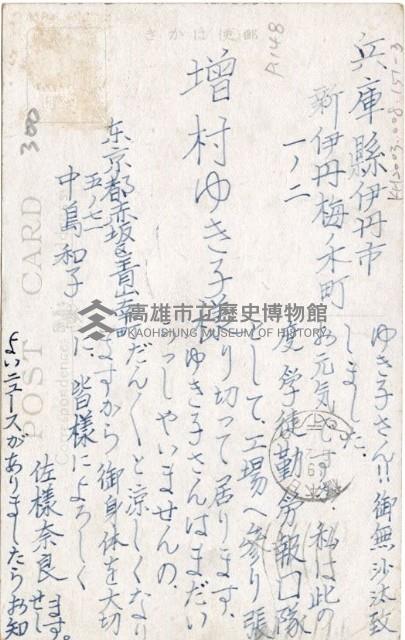 兵庫縣伊丹市
新伊丹梅ノ木町
一ノ二
増村ゆき子様
東京都赤坂區青山
五ノ七
中島和子
ゆき子さん!!御無沙汰致
しました。
お元気ですか。私は此の
度学徒勤労報口隊
として、工場へ参り張
り切って居ります。
ゆき子さんはまだい
らっしやいませんの。
だんくと涼しくなり
ますから御身体を大切
に 皆様によろしく
佐様奈良
よいニュースがありましたらお知
せします。
きかは便郵
POST CARD
Correspondence
高雄市立歷史博物館
KAOHSIUNG MUSEUM OF HISTORY
A148
300
KH2003.008.151-3